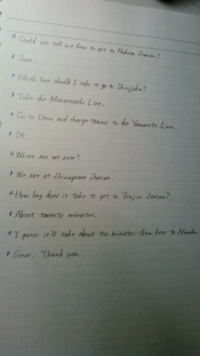 Could you tell me how to get to Hakata Station?
Sure.
Which line should I take to go to Shinjuku?
Take the Marunouchi Line.
Go to Ueno and change trains to the Yamanote Line.
OK.
Where are we now?
We are at Shinagawa Station.
How long does it take to get to Tenjin Station?
About twenty minutes.
I guess it'll take about ten minutes from here to Namba.
Great. Thank you.